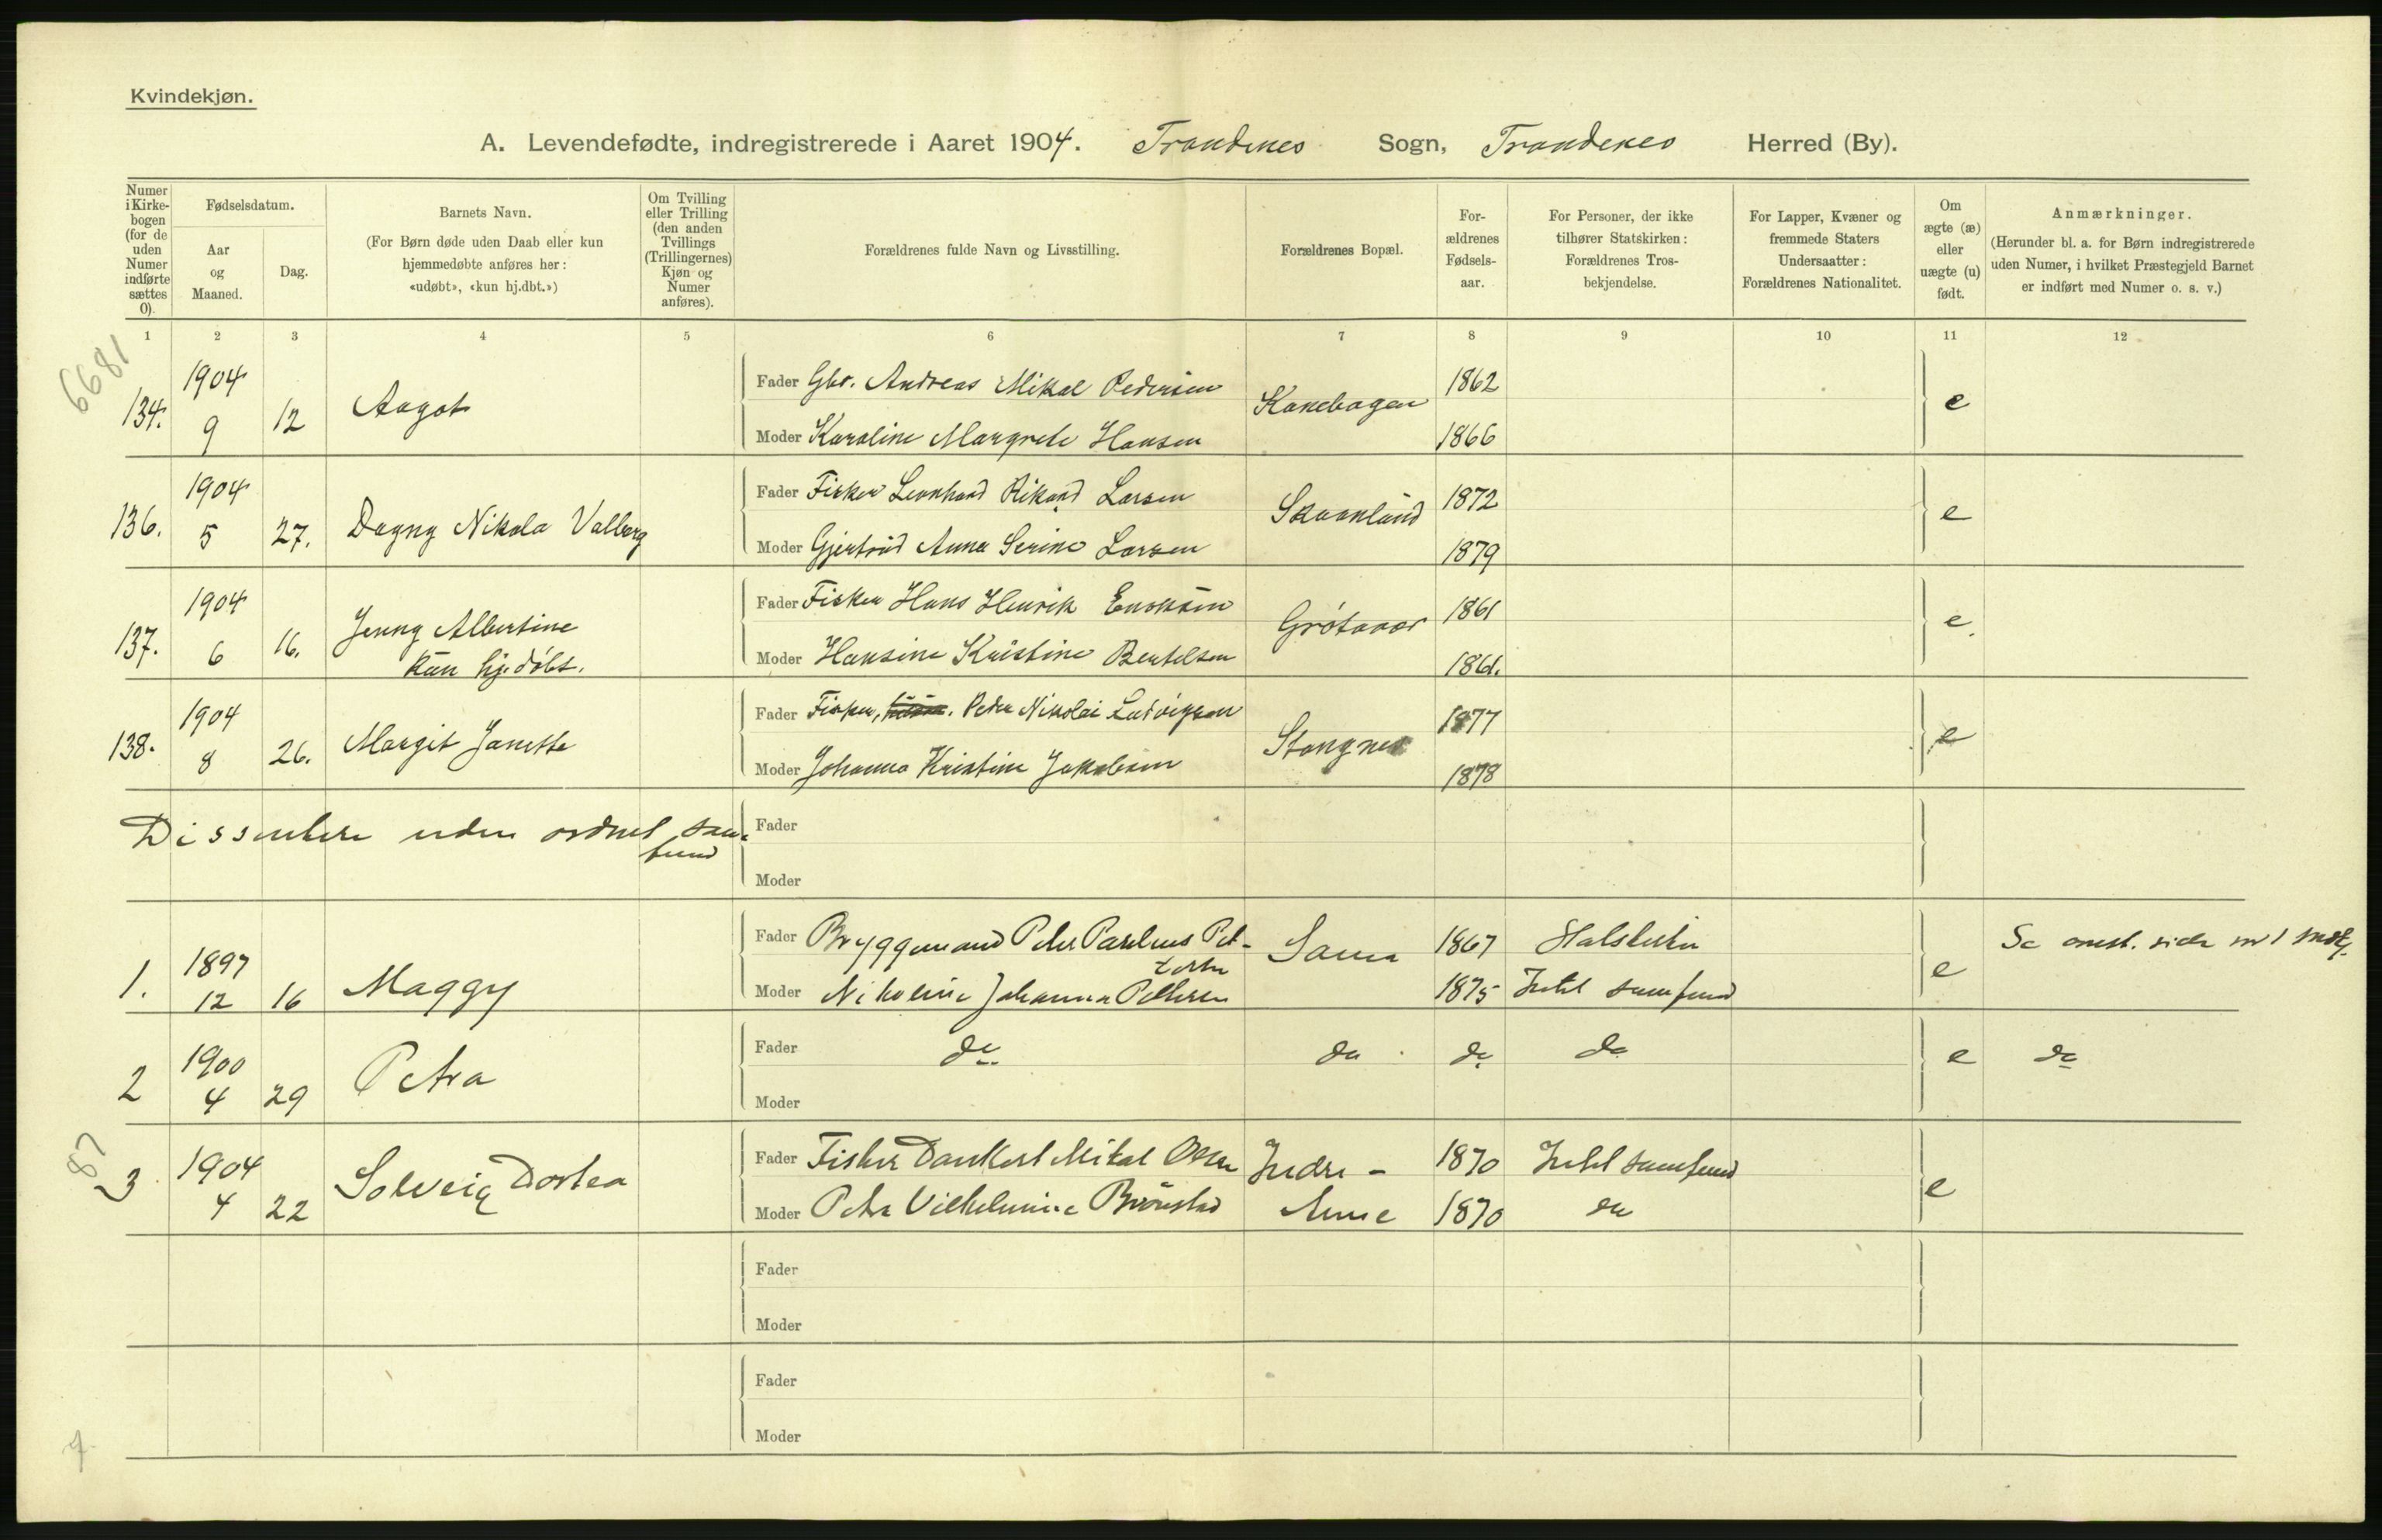 Kvindekjøn.
A. Levendefødte, indregistrerede i Aaret 1904. Trondenes Sogn, Trondenes Herred (By).
Numer i Kirkebogen (for de uden Numer indførte sættes 0).
Fødselsdatum.
Aar og Maaned.
Dag.
Barnets Navn.
(For Børn døde uden Daab eller kun
hjemmedøbte anføres her:
«udøbt», «kun hj.dbt.»)
Om Tvilling
eller Trilling
(den anden
Tvillings
(Trillingernes)
Kjøn og
Numer
anføres).
Forældrenes fulde Navn og Livsstilling.
Forældrenes Bopæl.
For-
ældrenes
Fødsels-
aar.
For Personer, der ikke
tilhører Statskirken:
Forældrenes Tros-
bekjendelse.
For Lapper, Kvæner og
fremmede Staters
Undersaatter:
Forældrenes Nationalitet.
Om
ægte (æ)
eller
uægte (u)
født.
Anmærkninger.
(Herunder bl. a. for Børn indregistrerede
uden Numer, i hvilket Præstegjeld Barnet
er indført med Numer o. s. v.)
1 2 3 4 5 6 7 8 9 10 11 12
6681
134. 1904 9 12 Aagot
Fader Gbr. Andreas Mikal Pedersen Kanebogen 1862 e
Moder Karoline Margrete Hansen 1866
136. 1904 5 27. Dagny Nikola Valberg
Fader Fisker Leonhard Rikard Larsen Skaanland 1872 e
Moder Gjertrud Anna Serine Larsen 1879
137. 1904 6 16. Jenny Albertine
kun hj.døbt.
Fader Fisker Hans Henrik Enoksen Grøtavær 1861 e.
Moder Hansine Kristine Bertelsen 1861.
138. 1904 8 26. Margit Janette
Fader Fisker, Peder Nikolai Ludvigsen Stangnes 1877 e
Moder Johanna Kristine Jakobsen 1878
Dissentere uden ordnet sam-
fund
Fader
Moder
1. 1897 12 16 Maggy
Fader Bryggemand Peder Parelius Pet-
tersen Sama 1867 Statskirken e Se mrk.
Moder Nikoline Johanna Pettersen 1875 Intet samfund
2 1900 4 29 Petra
Fader do do do do e do
Moder
87
3 1904 4 22 Solveig Dortea
Fader Fisker Dankert Mikal Olsen Indre- 1870 Intet samfund e
Moder Petra Vilhelmine Brønstad 1870 do
Fader
Moder
Fader
Moder